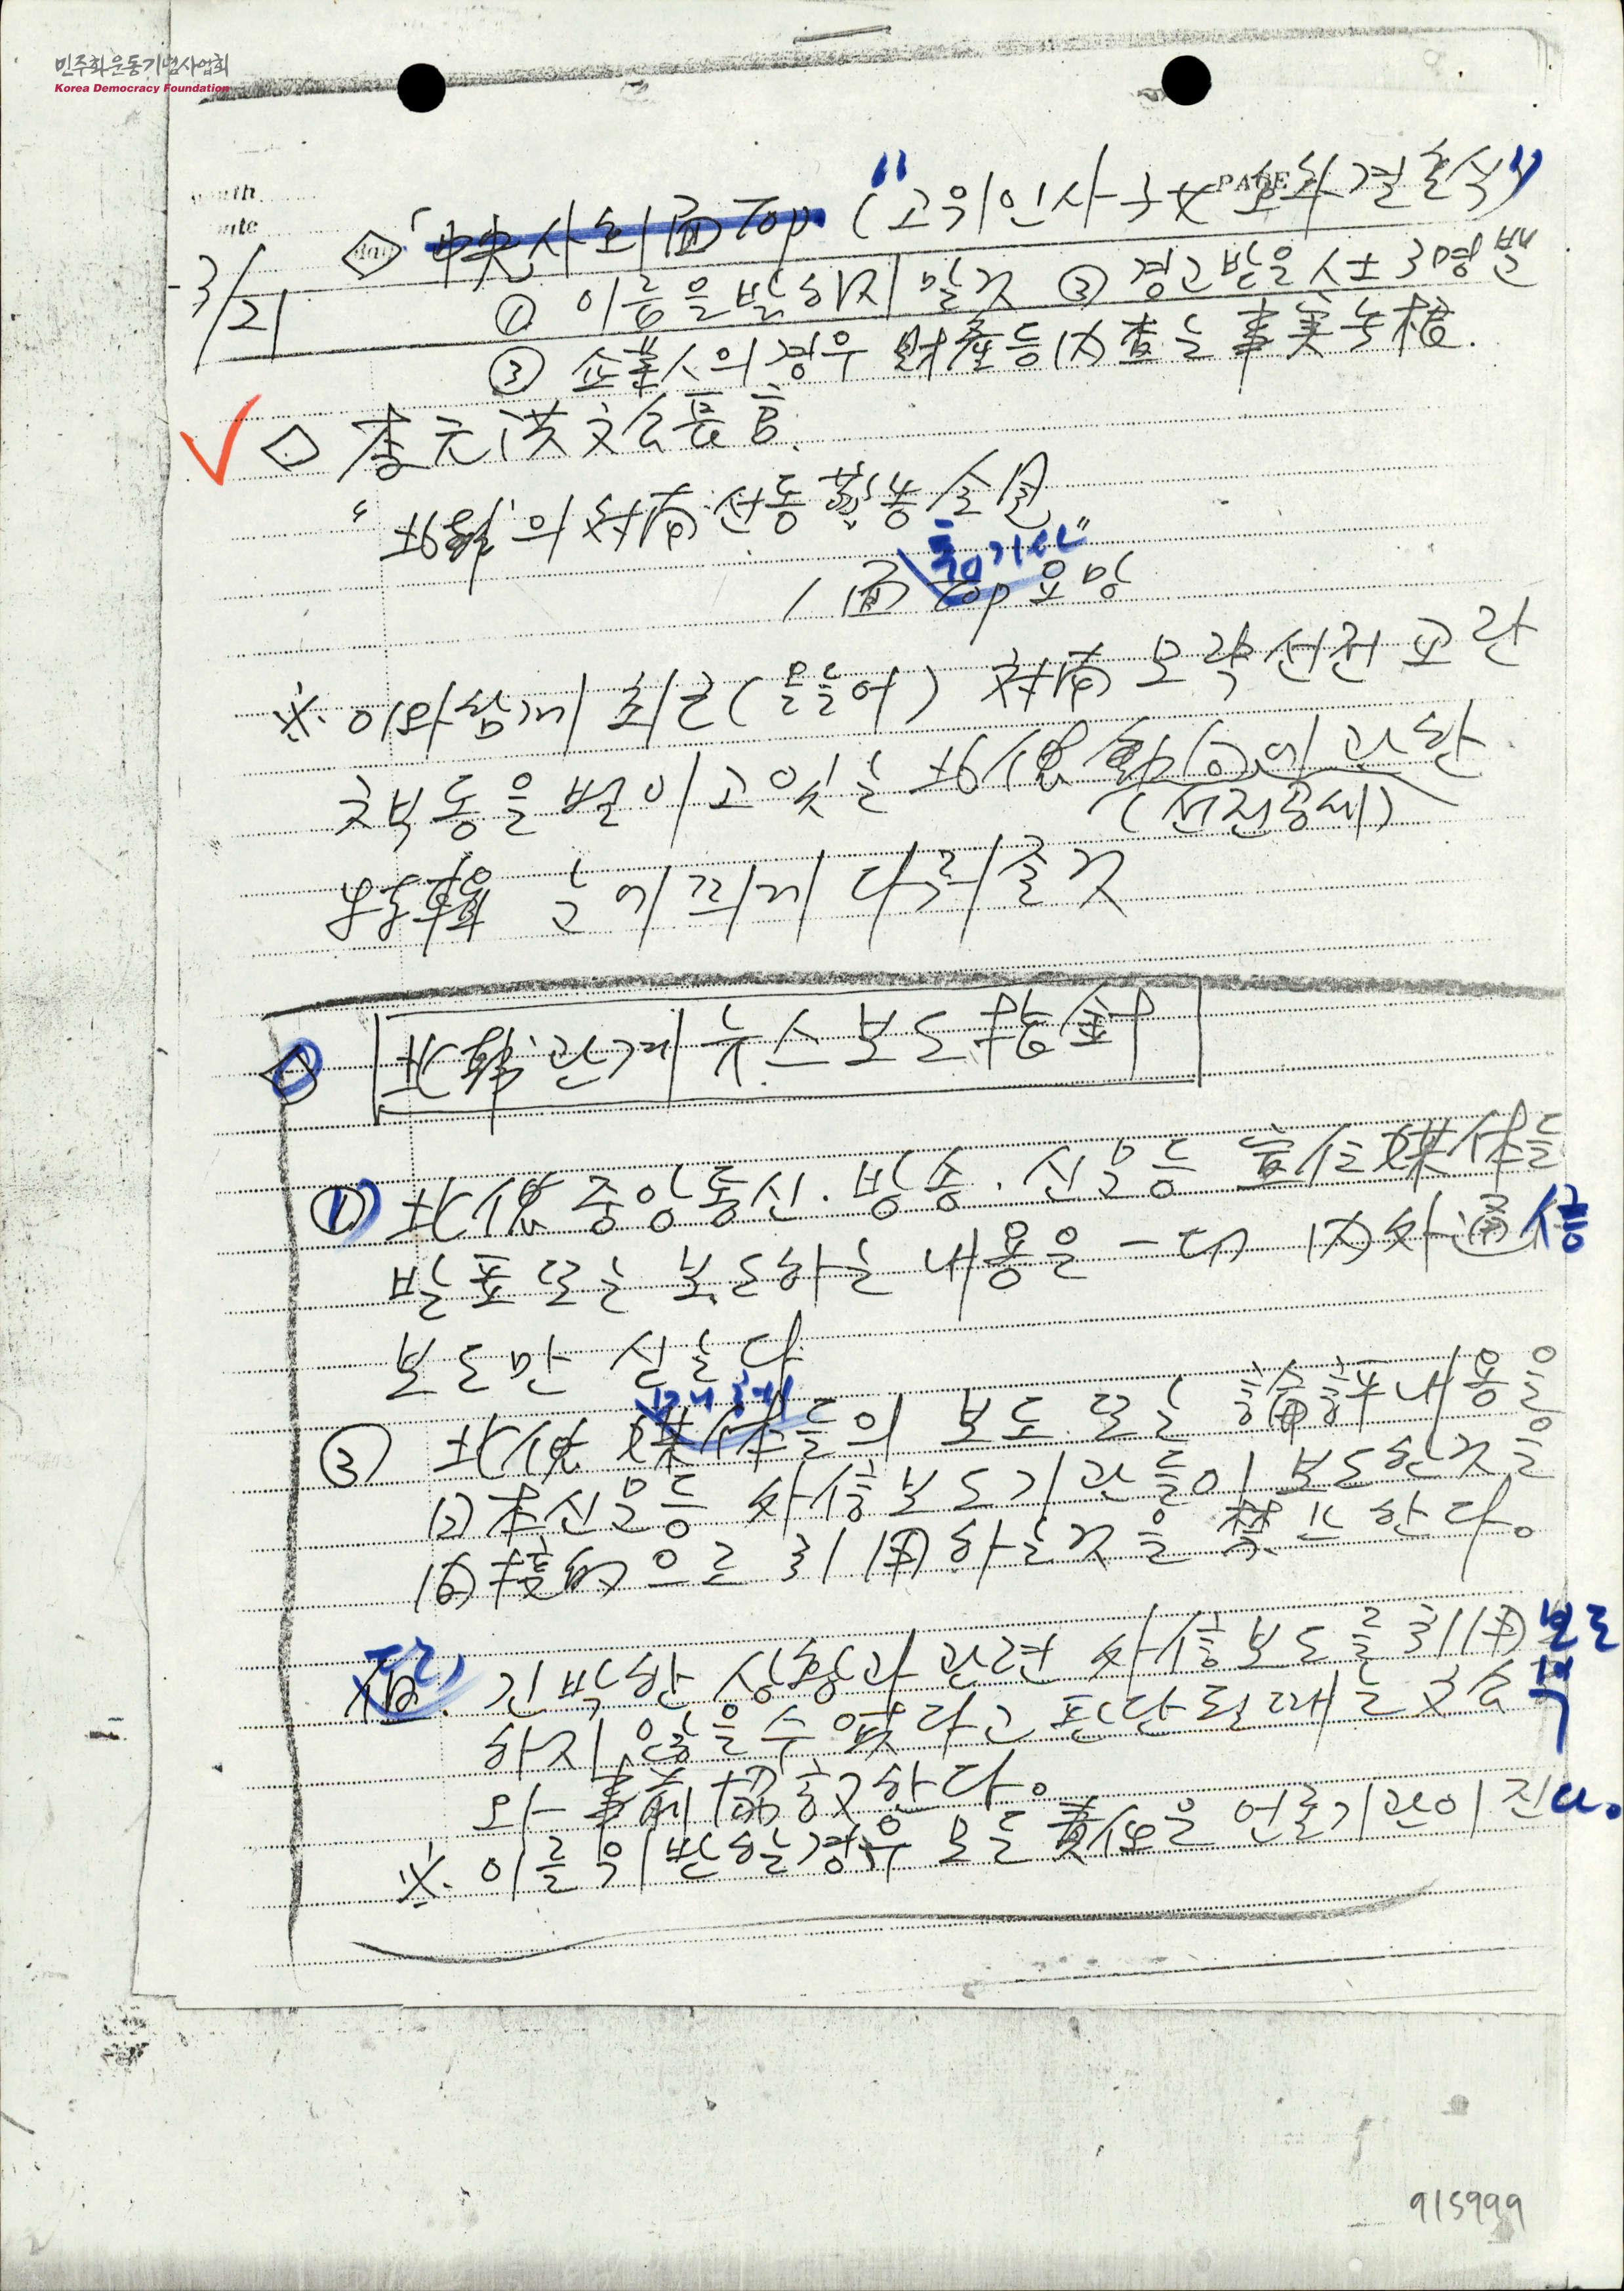 민주화운동기념사업회
Korea Democracy Foundation
PAGE
3/21 ◇ 中央 사회面 Top ("고위인사 子女 호화결혼식")
① 이름을 밝히지 말것 ② 경고받은 人士 3명뿐
③ 企業人의 경우 財産등 內査는 事實無根.
✓ ◇ 李元洪 文公長官.
"北韓의 対南 선동 활동 주력"
톱기사
1面 top 요망
※. 이와함께 최근(들어) 対南 모략선전 교란
책동을 벌이고 있는 北傀動向에 관한
(선전공세)
特輯 눈에 띄게 다뤄줄것
◇ 北韓관계 뉴스보도 指針
① 北傀 중앙통신. 방송. 신문등 宣伝媒体들
발표 또는 보도하는 내용은 一切 內外通信
보도만 싣는다
매체
③ 北傀 媒体들의 보도 또는 論評내용을
日本신문등 外信보도기관들이 보도한것을
間接的으로 引用하는것을 禁止한다.
단 긴박한 상황과 관련 外信보도를 引用 보도
하지 않을수 없다고 판단될때는 文公부
와 事前協議한다.
※. 이를 위반할경우 모든 責任은 언론기관이 진다.
915999